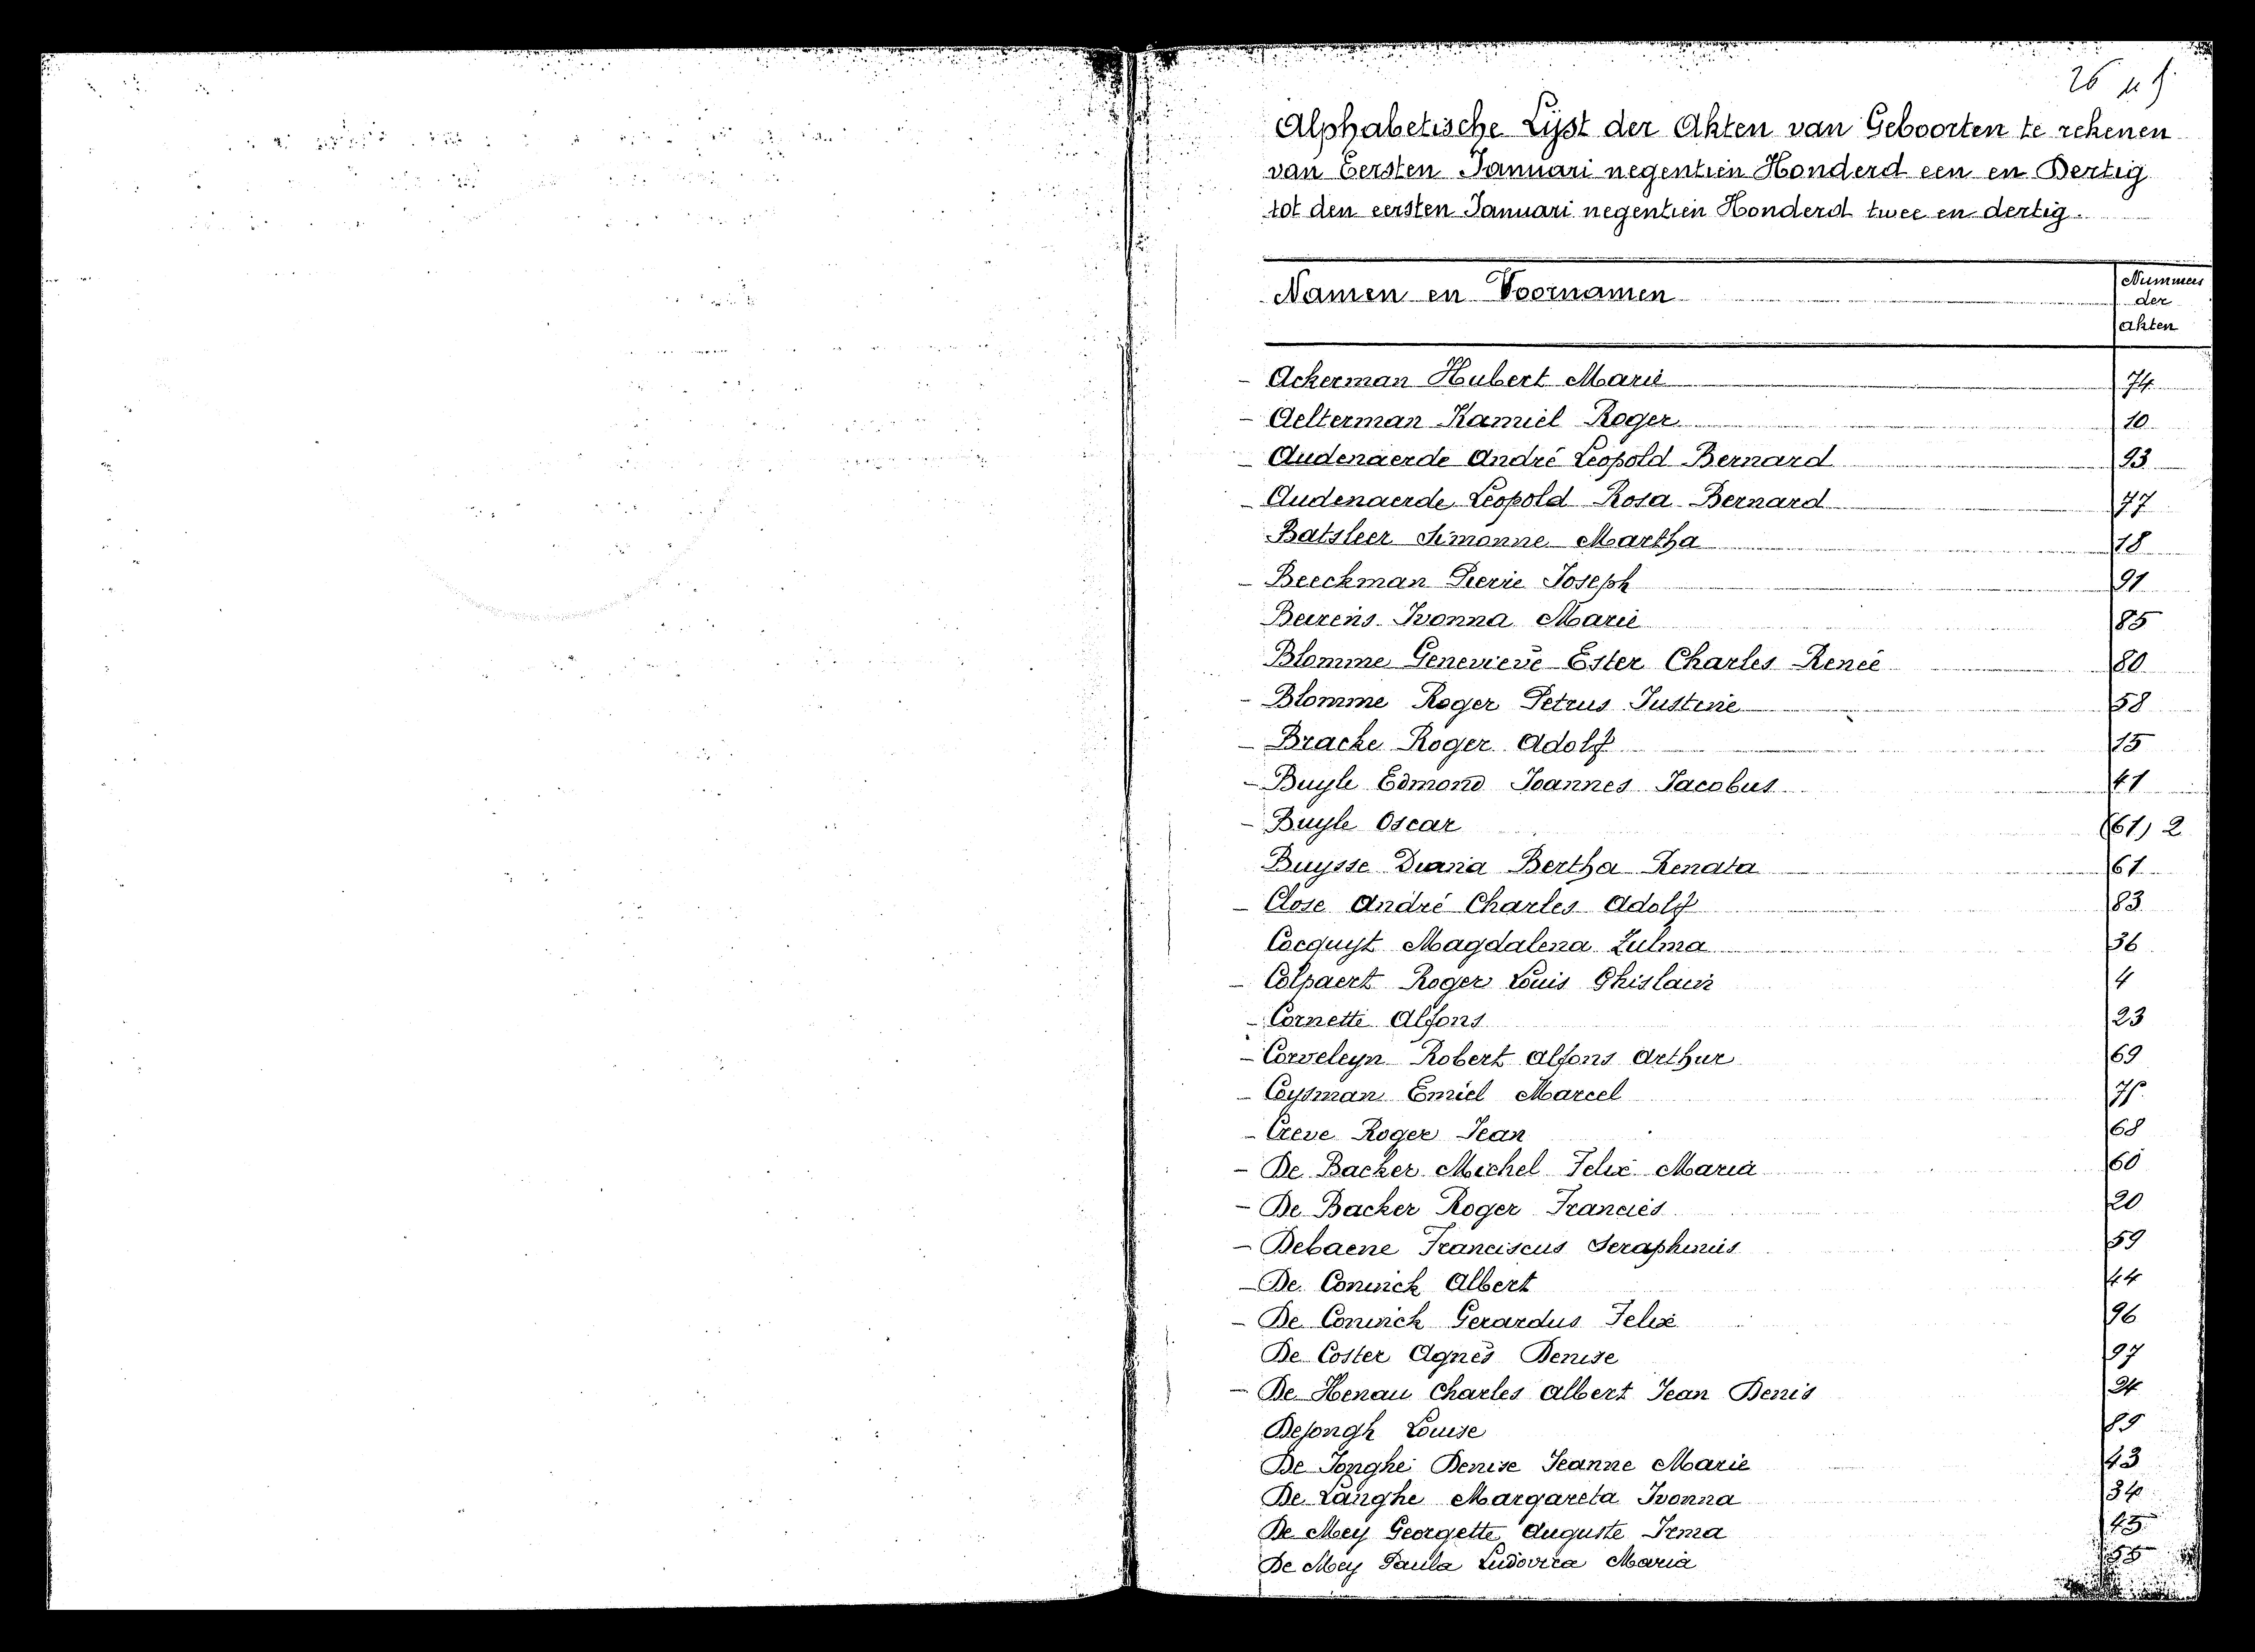 26
Alphabetische Lijst der Akten van Geboorten te rekenen
van Eersten Januari negentien Honderd een en Dertig
tot den eersten Januari negentien Honderd twee en dertig.
Namen en Voornamen Nummers
der
akten
- Ackerman Hubert Marie 74
- Aelterman Kamiel Roger 10
- Audenaerde André Leopold Bernard 93
- Audenaerde Leopold Rosa Bernard 77
Batsleer Simonne Martha 18
- Beeckman Pierre Joseph 91
Beirens Ivonna Marie 85
Blomme Genevieve Ester Charles Renée 80
- Blomme Roger Petrus Justine 58
- Bracke Roger Adolf 15
- Buyle Edmond Joannes Jacobus 41
- Buyle Oscar (61) 2
Buysse Diana Bertha Renata 61
- Close André Charles Adolf 83
Cocquyt Magdalena Zulma 36
- Colpaert Roger Louis Ghislain 4
- Cornette Alfons 23
- Corveleyn Robert Alfons Arthur 69
- Coysman Emiel Marcel
- Creve Roger Jean 68
- De Backer Michel Felix Maria 60
- De Backer Roger Francies 20
- Debaene Franciscus Seraphinus 59
- De Coninck Albert 44
- De Coninck Gerardus Felix 96
De Coster Agnès Denise 97
- De Henau Charles Albert Jean Denis 24
Dejongh Louise 89
De Jonghe Denise Jeanne Marie 43
De Langhe Margareta Ivonna 34
De Mey Georgette Auguste Irma 45
De Mey Paula Ludovica Maria 55